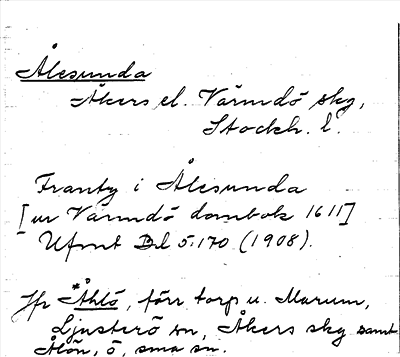 Ålesunda
Åkers el. Värmdö skg,
Stockh. l.
Franty i Ålesunda
[ur Värmdö dombok 1611]
Ufmt Bd 5:170 (1908).
Jfr *Åhlö, förr torp u. Marum,
Ljusterö sn, Åkers skg samt
Ålön, ö, sma sn.